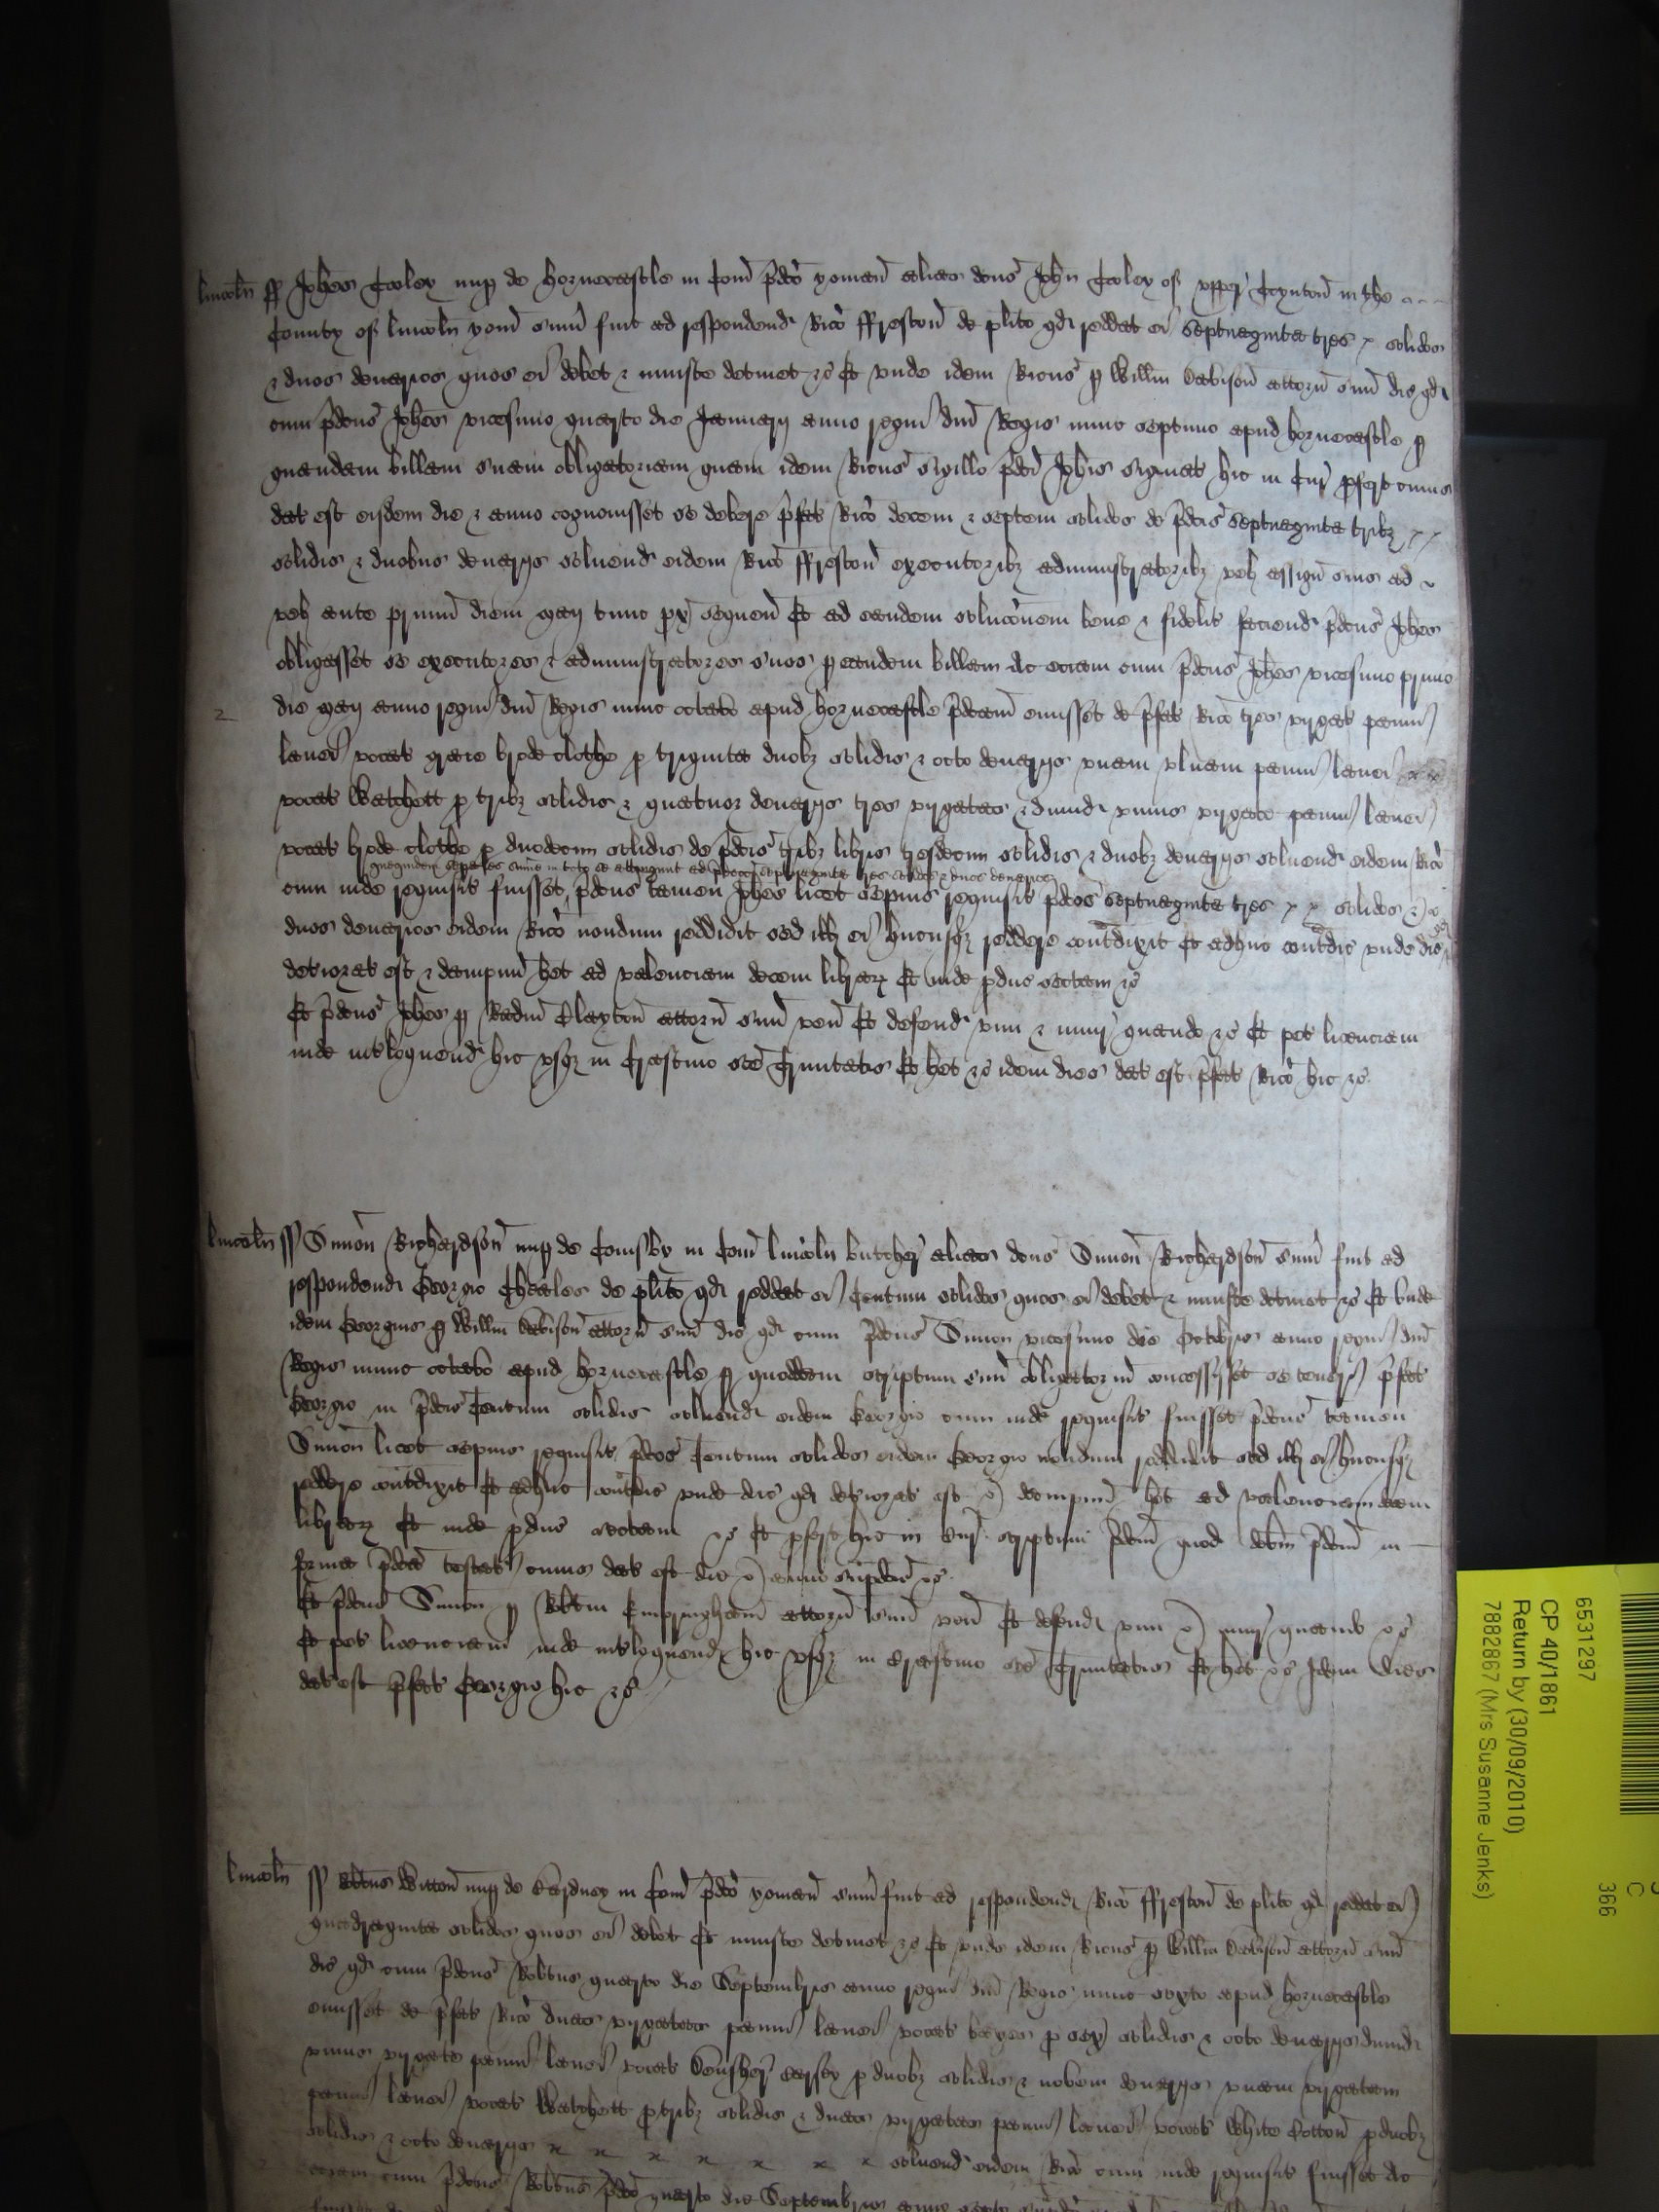 lincoln ss Joh̄es Cooley nup̱ de Horncastle in Com̄ p̄dc̄o yoman̄ alias dc̄us Joh̄n Cooley of upper Toynton̄ in the
County of lincoln yom̄ sum̄ fuit ad respondend Ric̄o ffreston̄ de pl̄ito qd reddat ei septuaginta tres x solidos
& duos denarios quos ei debet & iniuste detinet &c Et unde idem Ric̄us p̱ Will̄m Dabison̄ attorn̄ suū dic̄ qd
cum p̄dc̄us Joh̄es vicesimo quarto die January anno regni dn̄i Regis nunc septimo apud Horncastle p̱
quandam billam suam obligatoriam quam idem Ric̄us sigillo p̄dc̄i Joh̄is signat̄ hic in Cur̄ p̱fert cuius
dat̄ est eisdem die & anno cognovisset se debere p̄fat̄ Ric̄o decem & septem solidos de p̄dc̄is septuaginta trib₃ x x
solidis & duobus denarijs solvend̄ eidem Ric̄o ffreston̄ executorib₃ administratorib₃ vel assign̄ suis ad
vel ante primū diem May tunc p̱x̄ sequen̄ Et ad eandem soluc̄onem bene & fidelit̄ faciend̄ p̄dc̄us Joh̄es
obligasset se executores & administratores suos p̱ eandem billam Ac eciam cum p̄dc̄us Joh̄es vicesimo primo
die May anno regni dn̄i Regis nunc octavo apud Horncastle p̄dc̄am emisset de p̄fat̄ Ric̄o tres virgat̄ panni
lanei vocat̄ brode clothe p̱ triginta duob₃ solidis & octo denarijs unam ulnam panni lanei x x
vocat̄ Watchett p̱ trib₃ solidis & quatuor denarijs tres virgatas & dimid̄ unius virgate panni lanei
vocat̄ brode clothe p̱ duodecim solidis de p̄dc̄is trib₃ libris tresdecim solidis & duob₃ denarijs solvend̄ eidem Ric̄o
quequidem sep̱ales sum̄e in toto se attingunt ad p̄dc̄os septuaginta tres solidos & duos denarios
cum inde requisit̄ fuisset p̄dc̄us tamen Joh̄es licet sepius requisit̄ p̄dc̄os septuaginta tres x x solidos &
duos denarios eidem Ric̄o nondum reddidit sed ill̄ ei hucusq₃ reddere cont̄dixit Et adhuc cont̄dic̄ unde dic̄ qd
deteriorat̄ est & dampnū h̄et ad valenciam decem librar̄ Et inde p̱duc̄ sectam &c
Et p̄dc̄us Joh̄es p̱ Clayton̄ attorn̄ suū ven̄ Et defend̄ vim & iniur̄ quando &c Et pet̄ licenciam
inde int̄loquend̄ hic usq₃ in Crastino sc̄e Trinitatis Et h̄et &c idem dies dat̄ est p̄fat̄ Ric̄o hic &c
lincoln ss Simon̄ Richardson̄ nup̱ de Conisby in Com̄ lincoln butcher alias dc̄us Simon̄ Richardson̄ sum̄ fuit ad
respondend̄ Georgio Cheales de pl̄ito qd reddat ei Centum solidos quos ei debet & iniuste detinet &c Et unde
idem Georgius p̱ Will̄m Dabison̄ attorn̄ suū dic̄ qd cum p̄dc̄us Simon vicesimo die Octobris anno regni dn̄i
Regis nunc octavo apud Horncastle p̱ quoddam scriptum suū obligatoriū concessisset se teneri p̄fat̄
Georgio in p̄dc̄is Centum solidis solvend̄ eidem Georgio cum inde requisit̄ fuisset p̄dc̄us tamen
Simon̄ licet sepius requisit̄ p̄dc̄os Centum solidos eidem Georgio nondum reddidit sed ill̄ ei hucusq₃
reddere cont̄dixit Et adhuc cont̄dic̄ unde dic̄ qd deteriorat̄ est & dampnū h̄et ad valenciam decem
librar̄ Et inde p̱duc̄ sectam &c Et p̱fert hic in Cur̄ scriptum p̄dc̄m quod debit̄m p̄dc̄m in
forma p̄dc̄a testat̄ cuius dat̄ est die & anno sup̱dc̄is &c
Et p̄dc̄us Simon p̱ Rob̄tm attorn̄ suū ven̄ Et defend̄ vim & iniur̄ quando &c
Et pet̄ licenciam inde int̄loquend̄ hic usq₃ in Crastino sc̄e Trinitatis Et h̄et &c Idem dies
dat̄ est p̄fat̄ Georgio hic &c
lincoln ss Rob̄tus Witton̄ nup̱ de Kardney in Com̄ p̄dc̄o yoman̄ sum̄ fuit ad respondend̄ Ric̄o ffreston̄ de pl̄ito qd reddat ei
quadraginta solidos quos ei debet Et iniuste detinet &c Et unde idem Ric̄us p̱ Will̄m Dabison̄ attorn̄ suū
dic̄ qd cum p̄dc̄us Rob̄tus quarto die Septembris anno regni dn̄i Regis nunc sexto apud Horncastle
emisset de p̄fat̄ Ric̄o duas virgatas panni lanei vocat̄ bayes p̱ sex solidis & octo denarijs dimid̄
unius virgate panni lanei vocat̄ Devisher carsey p̱ duob₃ solidis & novem denarijs unam virgatam
panni lanei vocat̄ Watchett p̱ trib₃ solidis & duas virgatas panni lanei vocat̄ White Cotton̄ p̱ duob₃
solidis & octo denarijs x x x x x x x solvend̄ eidem Ric̄o cum inde requisit̄ fuisset Ac
eciam cum p̄dc̄us Rob̄tus p̄dc̄o quarto die Septembris anno sexto
6531297
CP 40/1861
Return by (30/09/2010)
7882867 (Mrs Susanne Jenks)
C
366